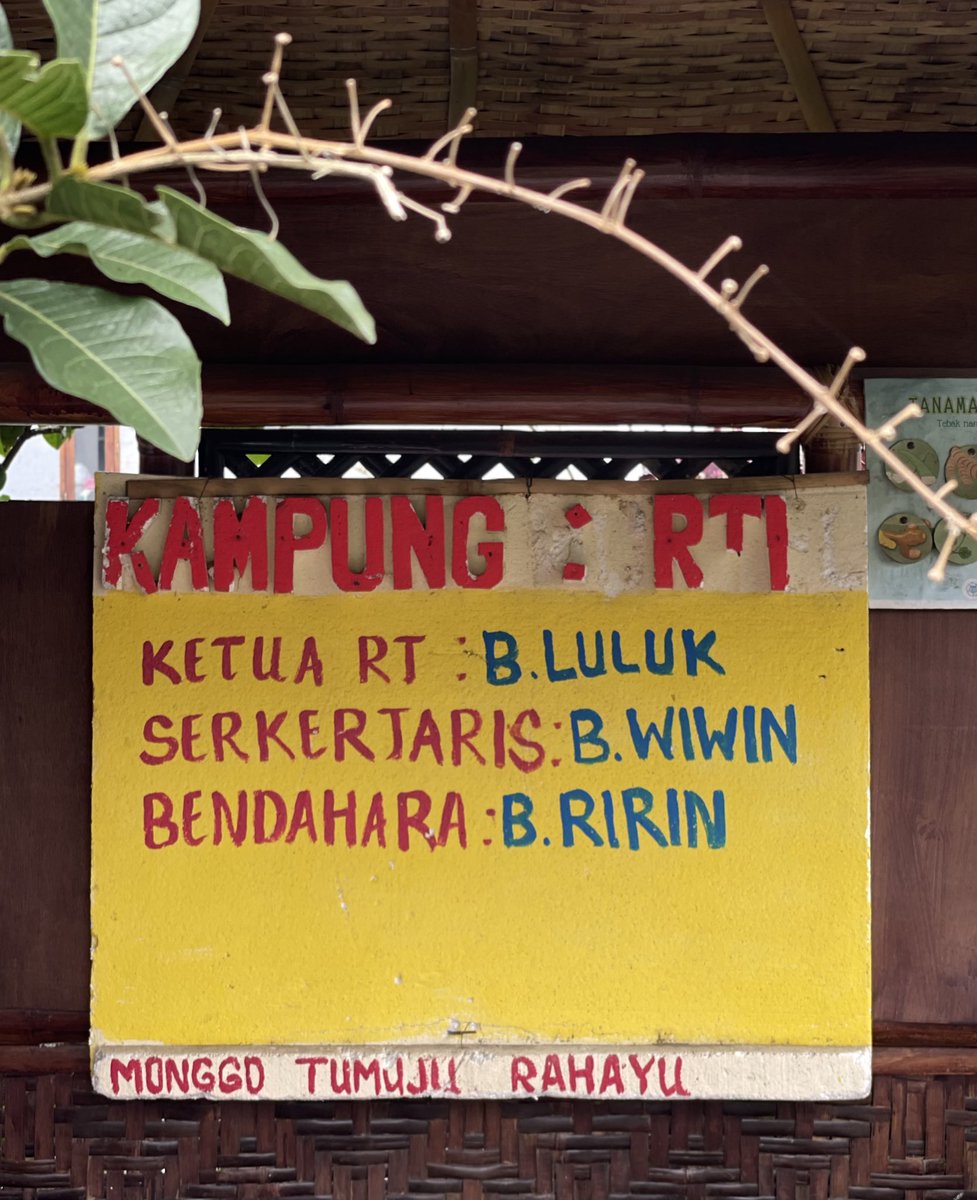 KAMPUNG : RT1
KETUA RT : B.LULUK
SERKERTARIS : B.WIWIN
BENDAHARA : B.RIRIN
MONGGO TUMUJU RAHAYU
Tebak